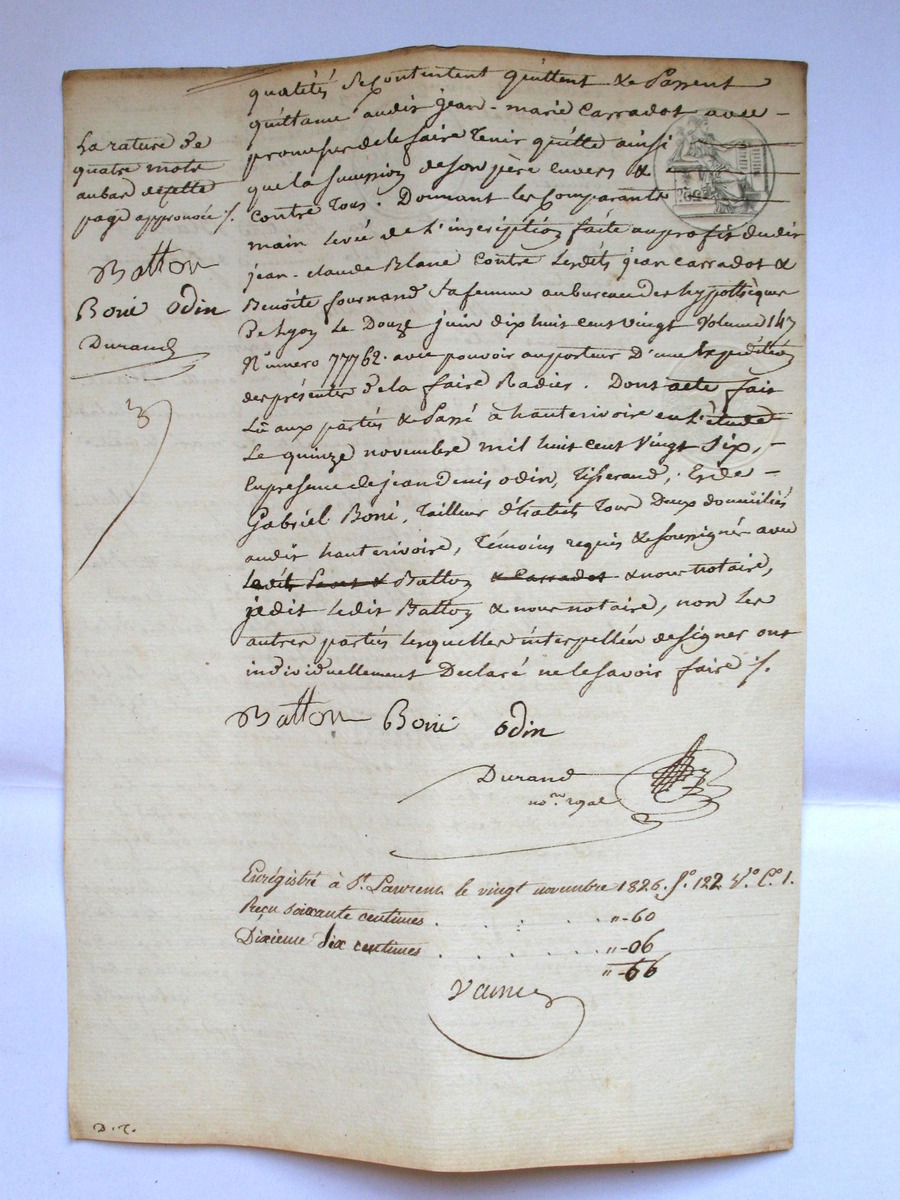 qualités se contentent quittent & Passent
quittance audit jean-marie Carradot avec -
promesse de le faire tenir quitte ainsi
que la succession de son père envers &
contre Tous. Donnant les Comparants
main levée de l'inscription faite au profit dudit
jean-claude Blanc contre lesdits jean Carradot &
Benoite fournand sa femme au bureau des hypothèques
De Lyon le Douze juin dix huit cent vingt Volume 147
Numero 77762. avec pouvoir au porteur D'une Expédition
des présentes De la faire Radier. Dont acte fait
Lû aux parties & Passé à hauterivoire en l'étude
Le quinze novembre mil huit cent Vingt Six, -
En présence de jean Denis odin, Tisserand, & de -
Gabriel Boni, Tailleur d'habits Tous Deux domiciliés
audit hauterivoire, Témoins requis & soussignés avec
ledit & Batton & Carradot & nous notaire,
je dit ledit Batton & nous notaire, non les
autres parties lesquelles interpellées de signer ont
individuellement Declaré ne le savoir faire ./.
Batton Boni odin
Durand
no.re royal
La rature De
quatre mots
au bas de cette
page approuvée ./.
Batton
Boni odin
Durand
Enrégistré à St. Laurent le vingt novembre 1826. f.o 122 V.o C.e 1.
Reçu soixante centimes . . . . . . "-60
Dixieme Six centimes . . . . . . "-06
"-66
D. T.